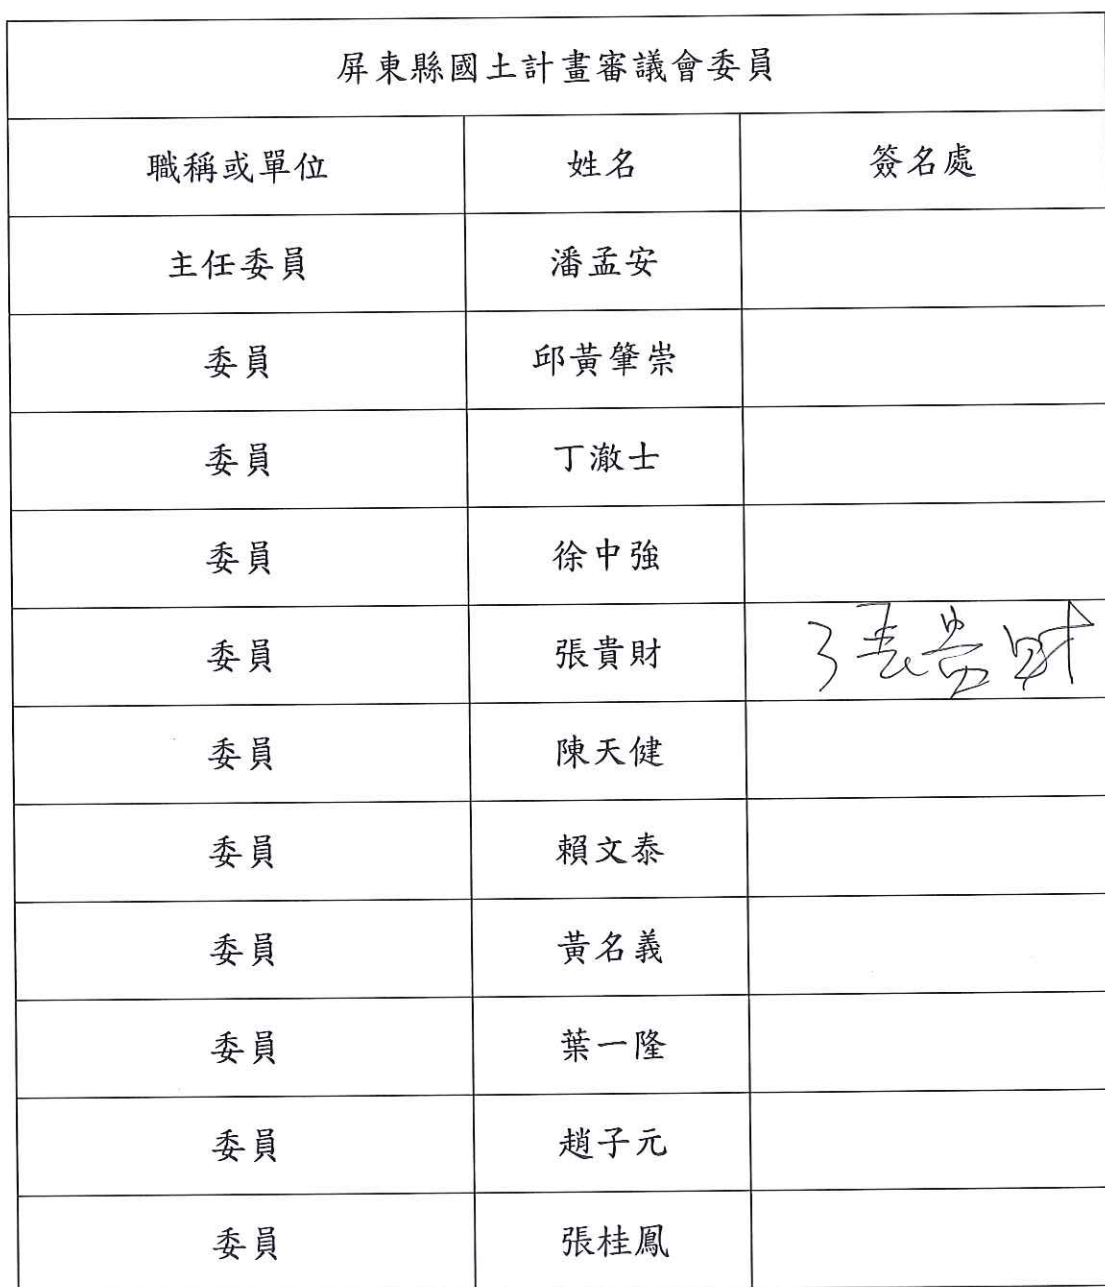 屏東縣國土計畫審議會委員
職稱或單位 姓名 簽名處
主任委員 潘孟安
委員 邱黃肇崇
委員 丁澈士
委員 徐中強
委員 張貴財 張貴財
委員 陳天健
委員 賴文泰
委員 黃名義
委員 葉一隆
委員 趙子元
委員 張桂鳳